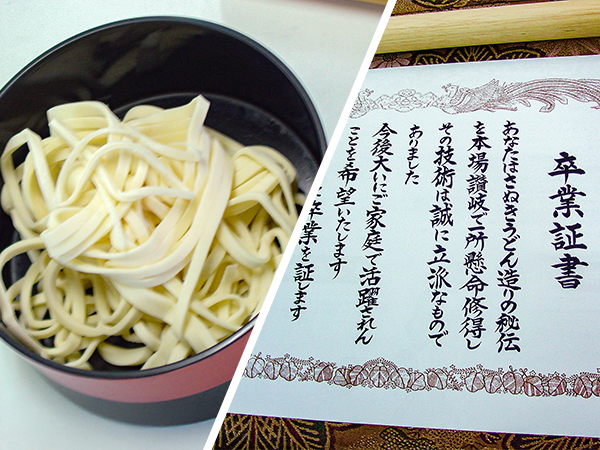 卒業証書
あなたはさぬきうどん造りの秘伝
を本場讃岐で一所懸命修得し
その技術は誠に立派なもので
ありました
今後大いにご家庭で活躍されん
ことを希望いたします
卒業を証します